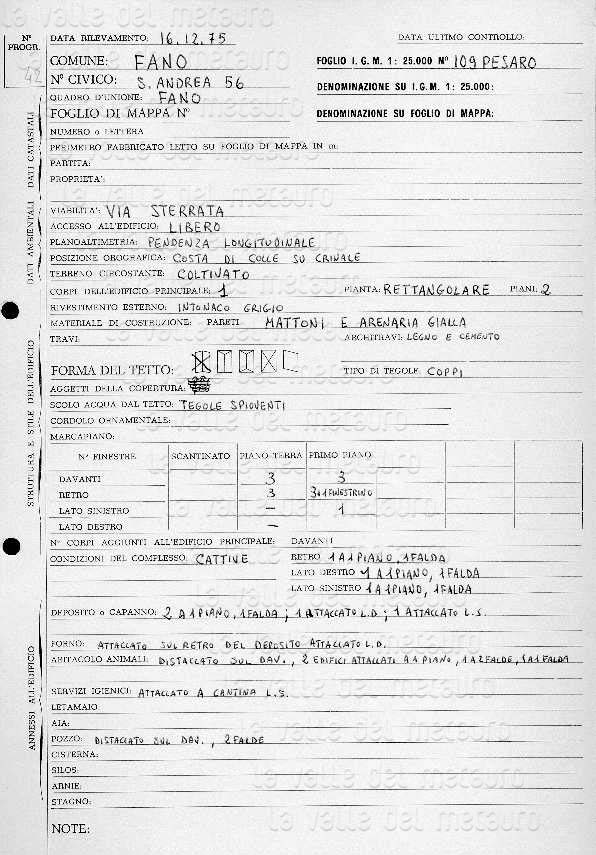 Nº PROGR. 42
DATA RILEVAMENTO: 16.12.75 DATA ULTIMO CONTROLLO:
COMUNE: FANO FOGLIO I.G.M. 1: 25.000 Nº 109 PESARO
Nº CIVICO: S. ANDREA 56 DENOMINAZIONE SU I.G.M. 1: 25.000:
QUADRO D'UNIONE: FANO
FOGLIO DI MAPPA Nº DENOMINAZIONE SU FOGLIO DI MAPPA:
NUMERO o LETTERA
PERIMETRO FABBRICATO LETTO SU FOGLIO DI MAPPA IN m:
PARTITA:
PROPRIETA':
DATI CATASTALI
VIABILITA': VIA STERRATA
ACCESSO ALL'EDIFICIO: LIBERO
PLANOALTIMETRIA: PENDENZA LONGITUDINALE
POSIZIONE OROGRAFICA: COSTA DI COLLE SU CRINALE
TERRENO CIRCOSTANTE: COLTIVATO
DATI AMBIENTALI
CORPI DELL'EDIFICIO PRINCIPALE: 1 PIANTA: RETTANGOLARE PIANI: 2
RIVESTIMENTO ESTERNO: INTONACO GRIGIO
MATERIALE DI COSTRUZIONE: PARETI MATTONI E ARENARIA GIALLA
TRAVI: ARCHITRAVI: LEGNO E CEMENTO
FORMA DEL TETTO: TIPO DI TEGOLE: COPPI
AGGETTI DELLA COPERTURA:
SCOLO ACQUA DAL TETTO: TEGOLE SPIOVENTI
CORDOLO ORNAMENTALE:
MARCAPIANO:
Nº FINESTRE SCANTINATO PIANO TERRA PRIMO PIANO
DAVANTI 3 3
RETRO 3 3 e 1 FINESTRINO
LATO SINISTRO – 1
LATO DESTRO –
STRUTTURA E STILE DELL'EDIFICIO
Nº CORPI AGGIUNTI ALL'EDIFICIO PRINCIPALE: DAVANTI
CONDIZIONI DEL COMPLESSO: CATTIVE RETRO 1 A 1 PIANO, 1 FALDA
LATO DESTRO 1 A 1 PIANO, 1 FALDA
LATO SINISTRO 1 A 1 PIANO, 1 FALDA
DEPOSITO o CAPANNO: 2 A 1 PIANO, 1 FALDA; 1 ATTACCATO L.D.; 1 ATTACCATO L.S.
FORNO: ATTACCATO SUL RETRO DEL DEPOSITO ATTACCATO L.D.
ABITACOLO ANIMALI: DISTACCATO SUL DAV., 2 EDIFICI ATTACCATI A 1 PIANO, 1 A 2 FALDE, 1 A 1 FALDA
SERVIZI IGIENICI: ATTACCATO A CANTINA L.S.
LETAMAIO:
AIA:
POZZO: DISTACCATO SUL DAV., 2 FALDE
CISTERNA:
SILOS:
ARNIE:
STAGNO:
ANNESSI ALL'EDIFICIO
NOTE:
la valle del metauro